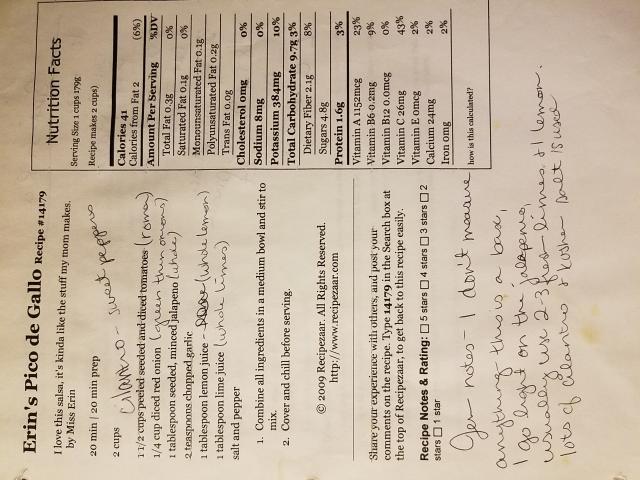 Erin's Pico de Gallo Recipe #14179
I love this salsa, it's kinda like the stuff my mom makes.
by Miss Erin
20 min | 20 min prep
2 cups
Cilantro - sweet peppers
1 1/2 cups peeled seeded and diced tomatoes (roma)
1/4 cup diced red onion (green thin onions)
1 tablespoon seeded, minced jalapeno (whole)
2 teaspoons chopped garlic
1 tablespoon lemon juice - (whole lemon)
1 tablespoon lime juice (whole limes)
salt and pepper
1. Combine all ingredients in a medium bowl and stir to
mix.
2. Cover and chill before serving.
© 2009 Recipezaar. All Rights Reserved.
http://www.recipezaar.com
Share your experience with others, and post your
comments on the recipe. Type 14179 in the Search box at
the top of Recipezaar, to get back to this recipe easily.
Recipe Notes & Rating: 5 stars 4 stars 3 stars 2
stars 1 star
Gen notes - I don't measure
anything this is a base,
I go light on the jalapenos,
usually use 2-3 fresh limes + 1 lemon.
lots of cilantro + kosher salt is used
Nutrition Facts
Serving Size 1 cups 179g
Recipe makes 2 cups)
Calories 41
Calories from Fat 2 (6%)
Amount Per Serving %DV
Total Fat 0.3g 0%
Saturated Fat 0.1g 0%
Monounsaturated Fat 0.1g
Polyunsaturated Fat 0.2g
Trans Fat 0.0g
Cholesterol 0mg 0%
Sodium 8mg 0%
Potassium 384mg 10%
Total Carbohydrate 9.7g 3%
Dietary Fiber 2.1g 8%
Sugars 4.8g
Protein 1.6g 3%
Vitamin A 1152mcg 23%
Vitamin B6 0.2mg 9%
Vitamin B12 0.0mcg 0%
Vitamin C 26mg 43%
Vitamin E 0mcg 2%
Calcium 24mg 2%
Iron 0mg 2%
how is this calculated?